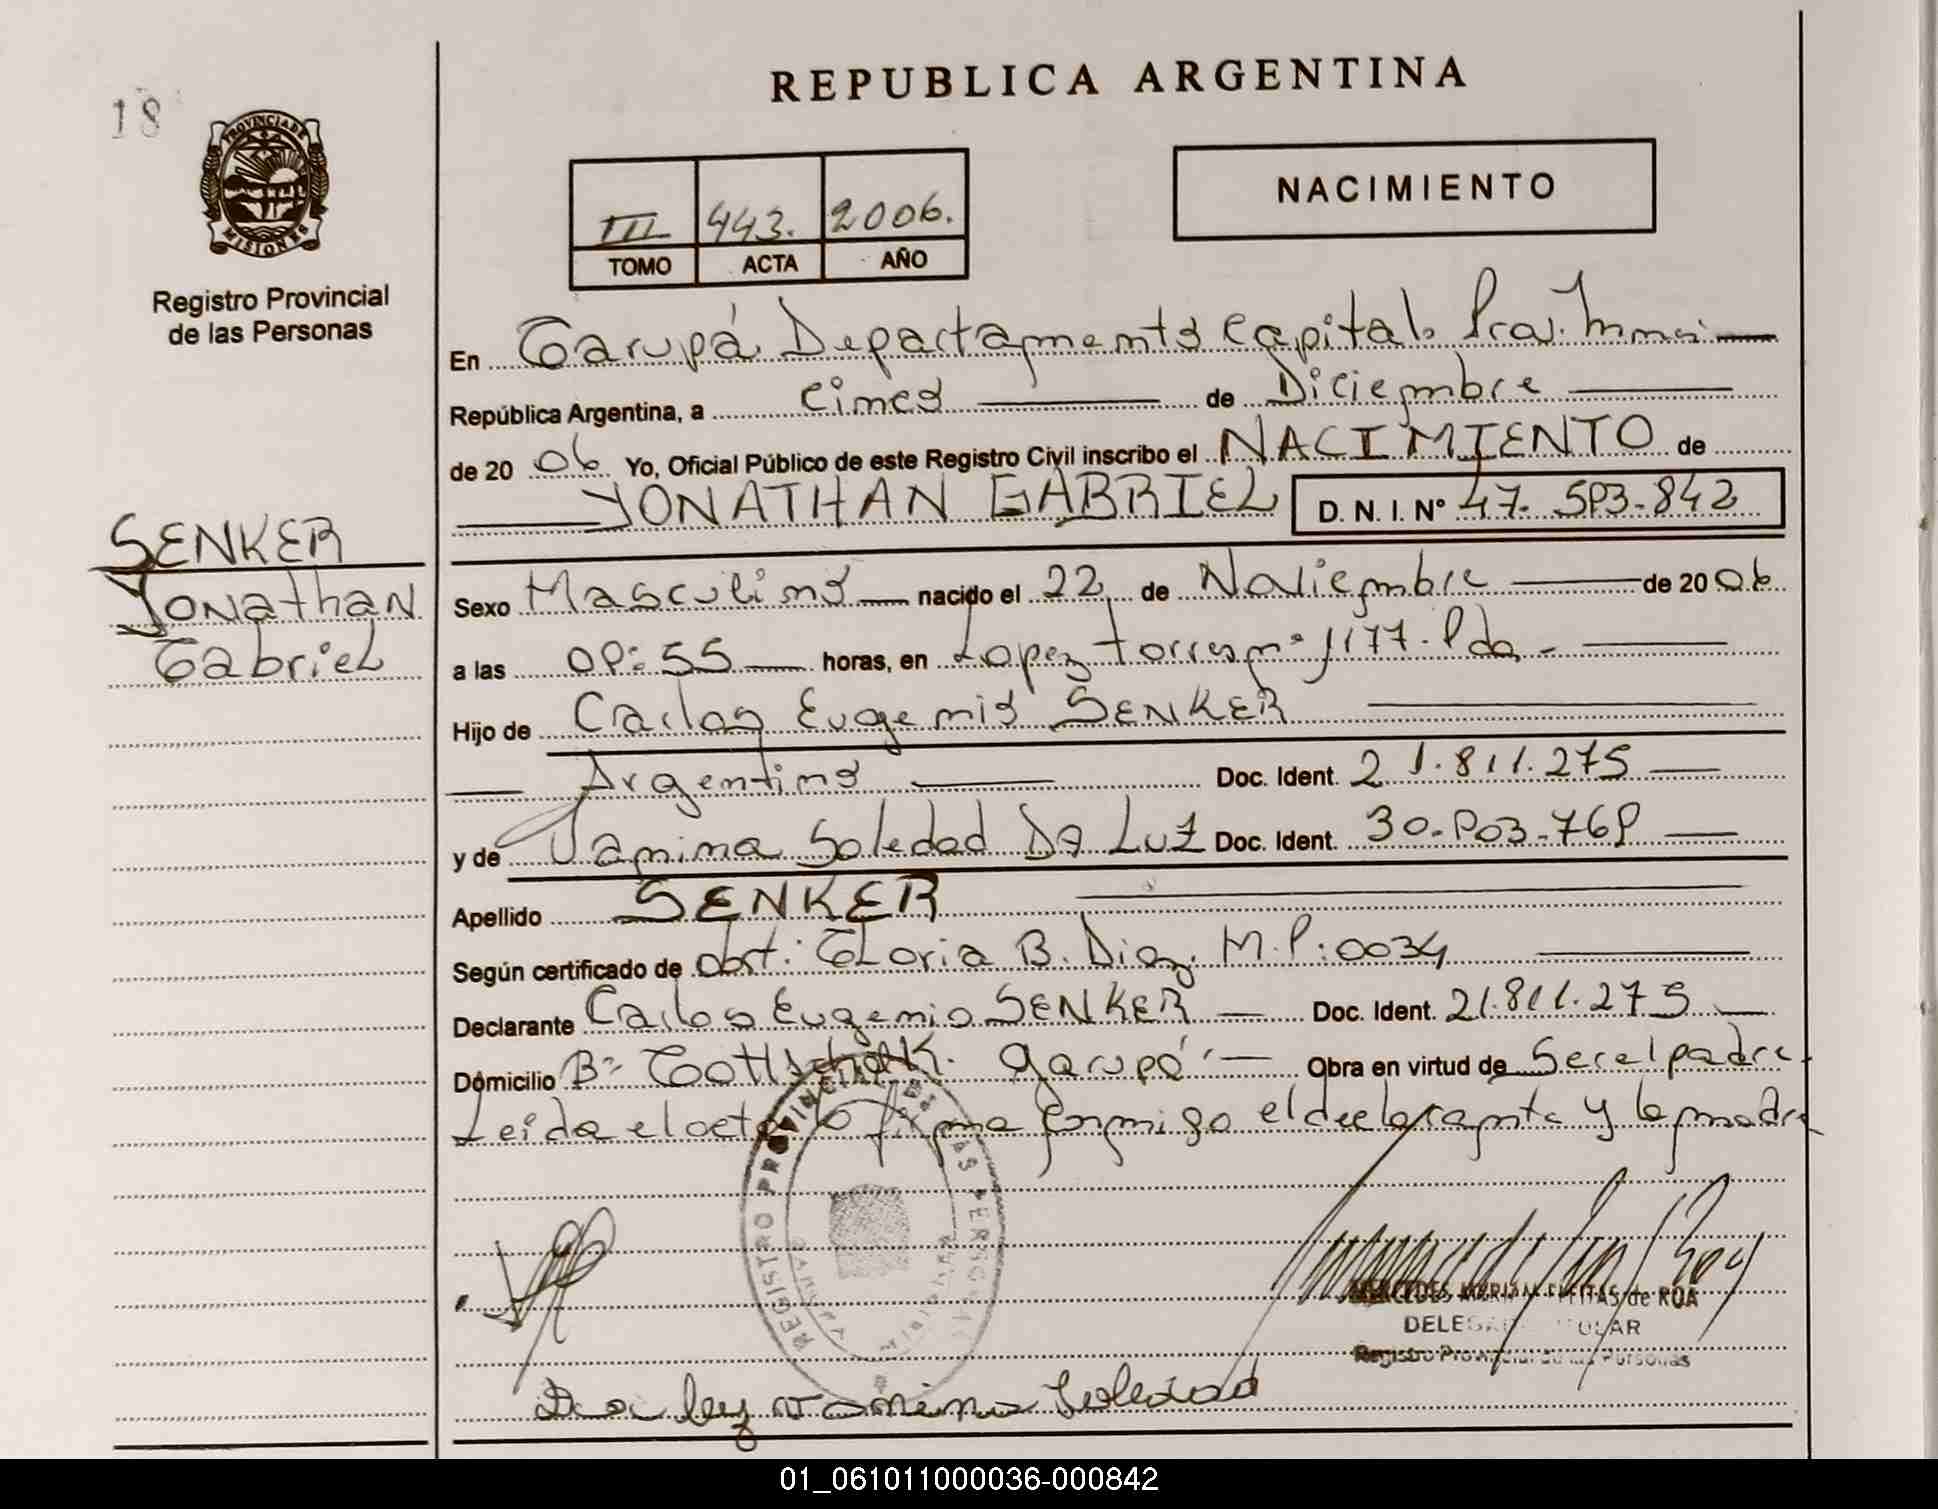 REPUBLICA ARGENTINA
18
PROVINCIA DE
MISIONES
Registro Provincial
de las Personas
NACIMIENTO
III 443. 2006.
TOMO ACTA AÑO
En Garupá Departamento Capital. Pcia. Mnes
República Argentina, a Cinco de Diciembre
de 2006 Yo, Oficial Público de este Registro Civil inscribo el NACIMIENTO de
YONATHAN GABRIEL D. N. I. Nº 47-593-842
SENKER
Yonathan
Gabriel
Sexo Masculino nacido el 22 de Noviembre de 2006
a las 09:55 horas, en Lopez Torres nº 1177. Pdas.-
Hijo de Carlos Eugenio SENKER
Argentino Doc. Ident. 21.811.275
y de Yanina Soledad Da Luz Doc. Ident. 30-903-769
Apellido SENKER
Según certificado de obst: Gloria B. Diaz. M.P:0034
Declarante Carlos Eugenio SENKER Doc. Ident. 21.811.275
Domicilio Bº Gottschalk. Garupá Obra en virtud de Ser el padre.
Leida el acta la firma conmigo el declarante y la madre
REGISTRO PROVINCIAL DE LAS PERSONAS
MERCEDES MIRIAM FREITAS de ROA
DELEGADA TITULAR
Registro Provincial de las Personas
Da luz Yanina Soledad
01_061011000036-000842